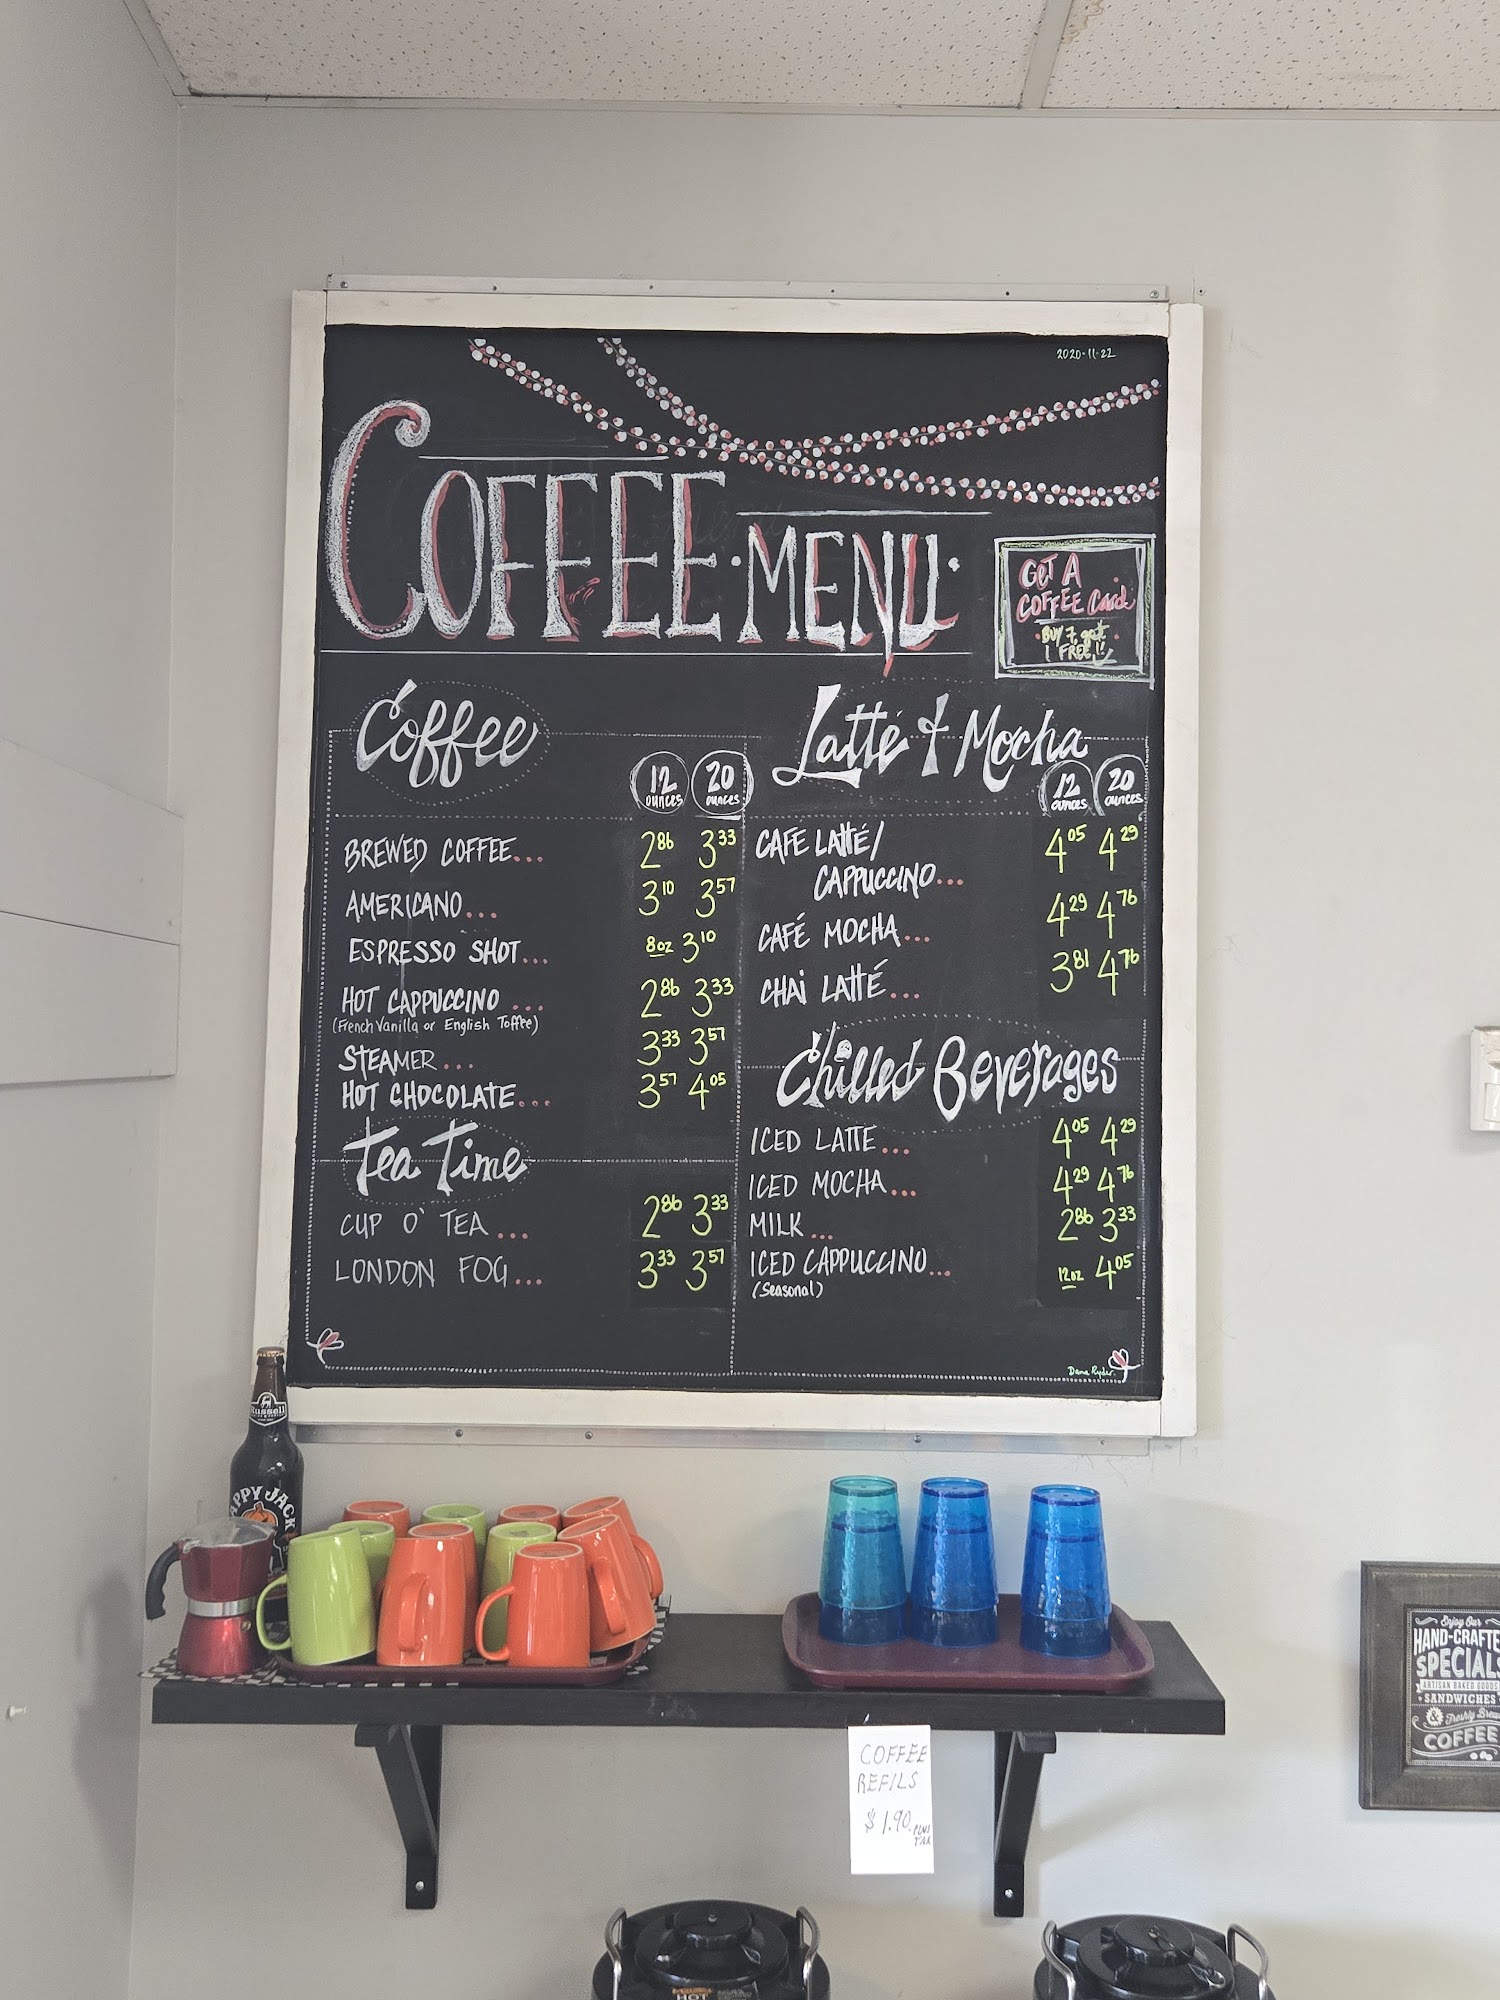 2020-11-22
COFFEE · MENU ·
GET A
COFFEE Card
· BUY 7 get ·
1 FREE!!
Coffee
12 ounces 20 ounces
BREWED COFFEE... 2 86 3 33
AMERICANO... 3 10 3 57
ESPRESSO SHOT... 8oz 3 10
HOT CAPPUCCINO ... 2 86 3 33
(French Vanilla or English Toffee)
STEAMER... 3 33 3 57
HOT CHOCOLATE... 3 57 4 05
Tea Time
CUP O' TEA ... 2 86 3 33
LONDON FOG... 3 33 3 57
Latté & Mocha
12 ounces 20 ounces
CAFE LATTÉ/ 4 05 4 29
CAPPUCCINO...
CAFÉ MOCHA... 4 29 4 76
CHAI LATTÉ... 3 81 4 76
Chilled Beverages
ICED LATTE... 4 05 4 29
ICED MOCHA... 4 29 4 76
MILK... 2 86 3 33
ICED CAPPUCCINO... 12oz 4 05
(Seasonal)
Dana Ryder.
Russell
APPY JACK
COFFEE
REFILS
$1.90 PLUS
TAX
Enjoy Our
HAND-CRAFTE
SPECIALS
ARTISAN BAKED GOODS
SANDWICHES
& Freshly Brew
COFFEE
HOT